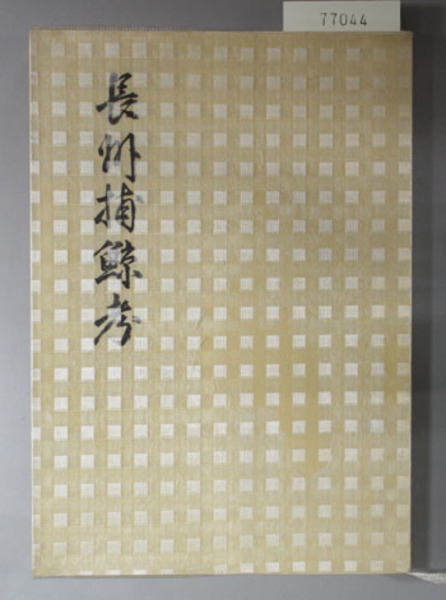 77044
長州捕鯨考